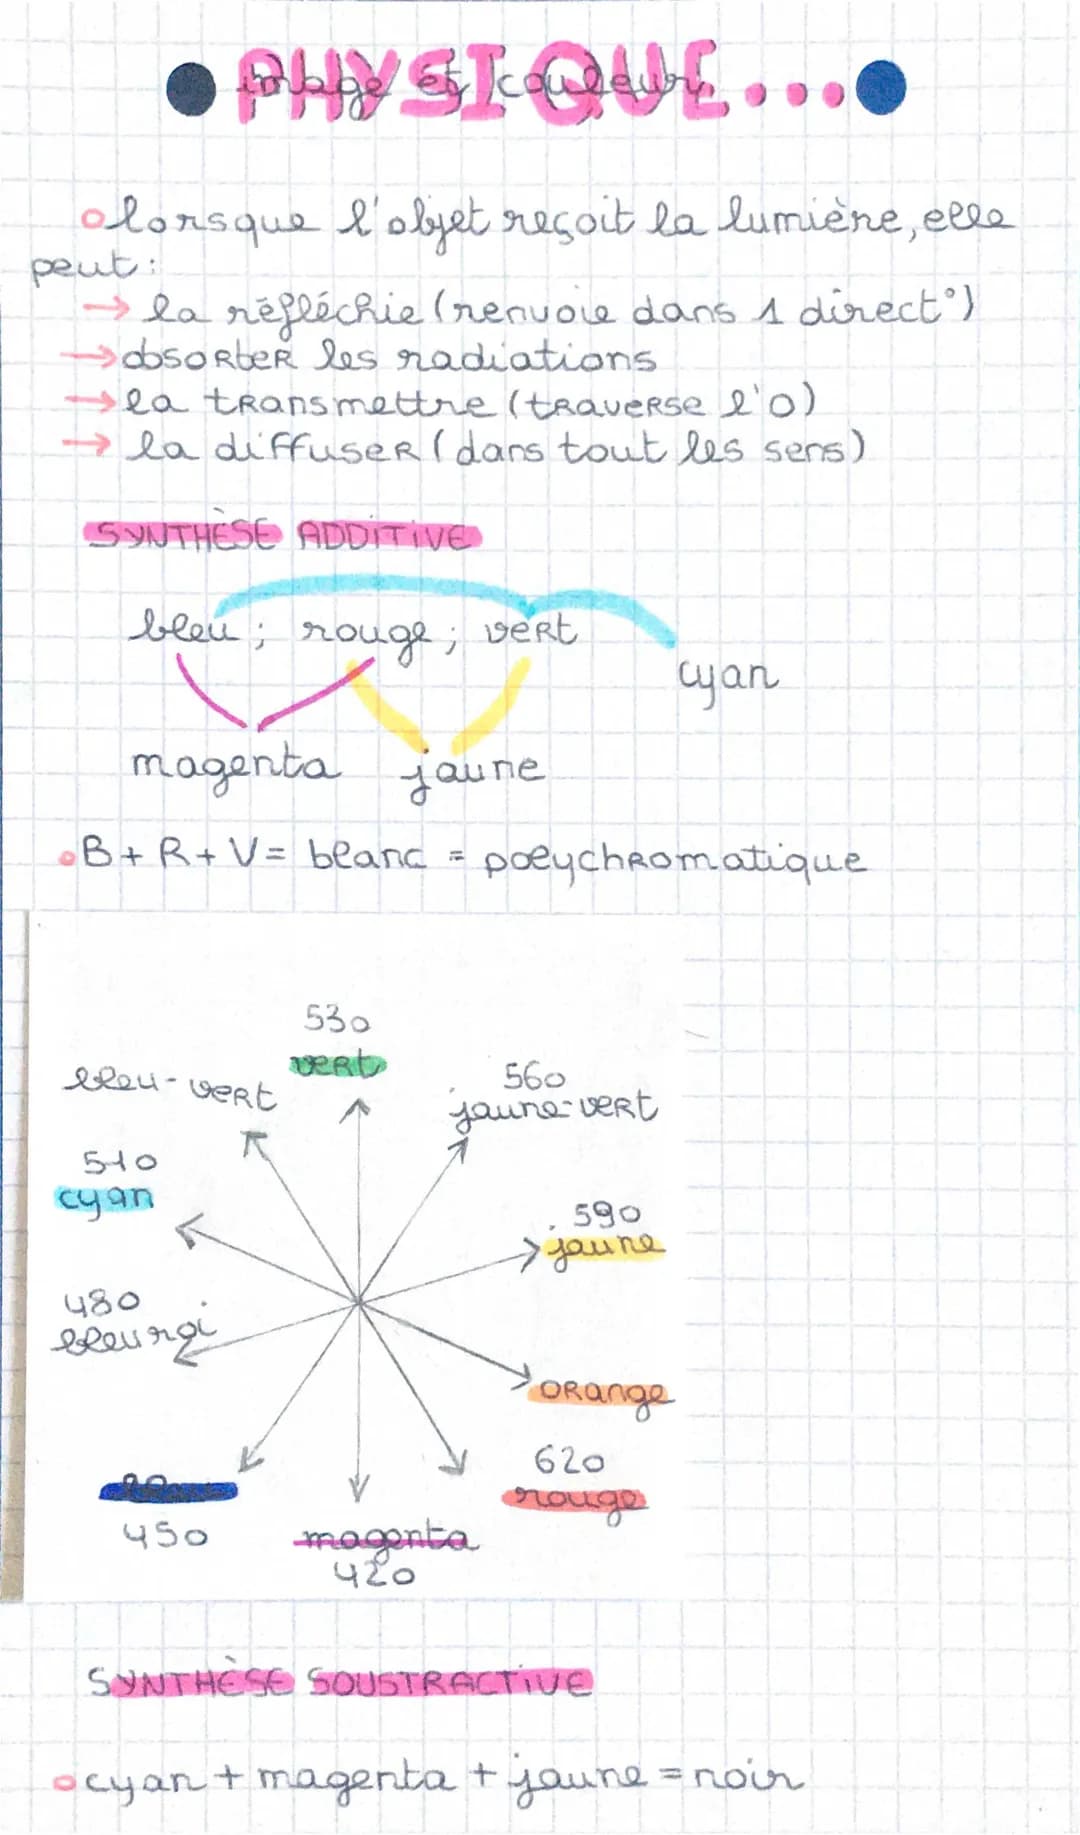 PHYSIQUE...
image et couleur
lorsque l'objet reçoit la lumière, elle
peut :
→ la réfléchie (renvoie dans 1 direct°)
→ absorber les radiations
→ la transmettre (traverse l'o)
→ la diffuser (dans tout les sens)
SYNTHÈSE ADDITIVE
bleu ; rouge ; vert
cyan
magenta jaune
B + R + V = blanc = polychromatique
530
vert
bleu-vert
560
jaune-vert
510
cyan
590
jaune
480
bleu roi
orange
620
rouge
bleu
450
magenta
420
SYNTHÈSE SOUSTRACTIVE
cyan + magenta + jaune = noir